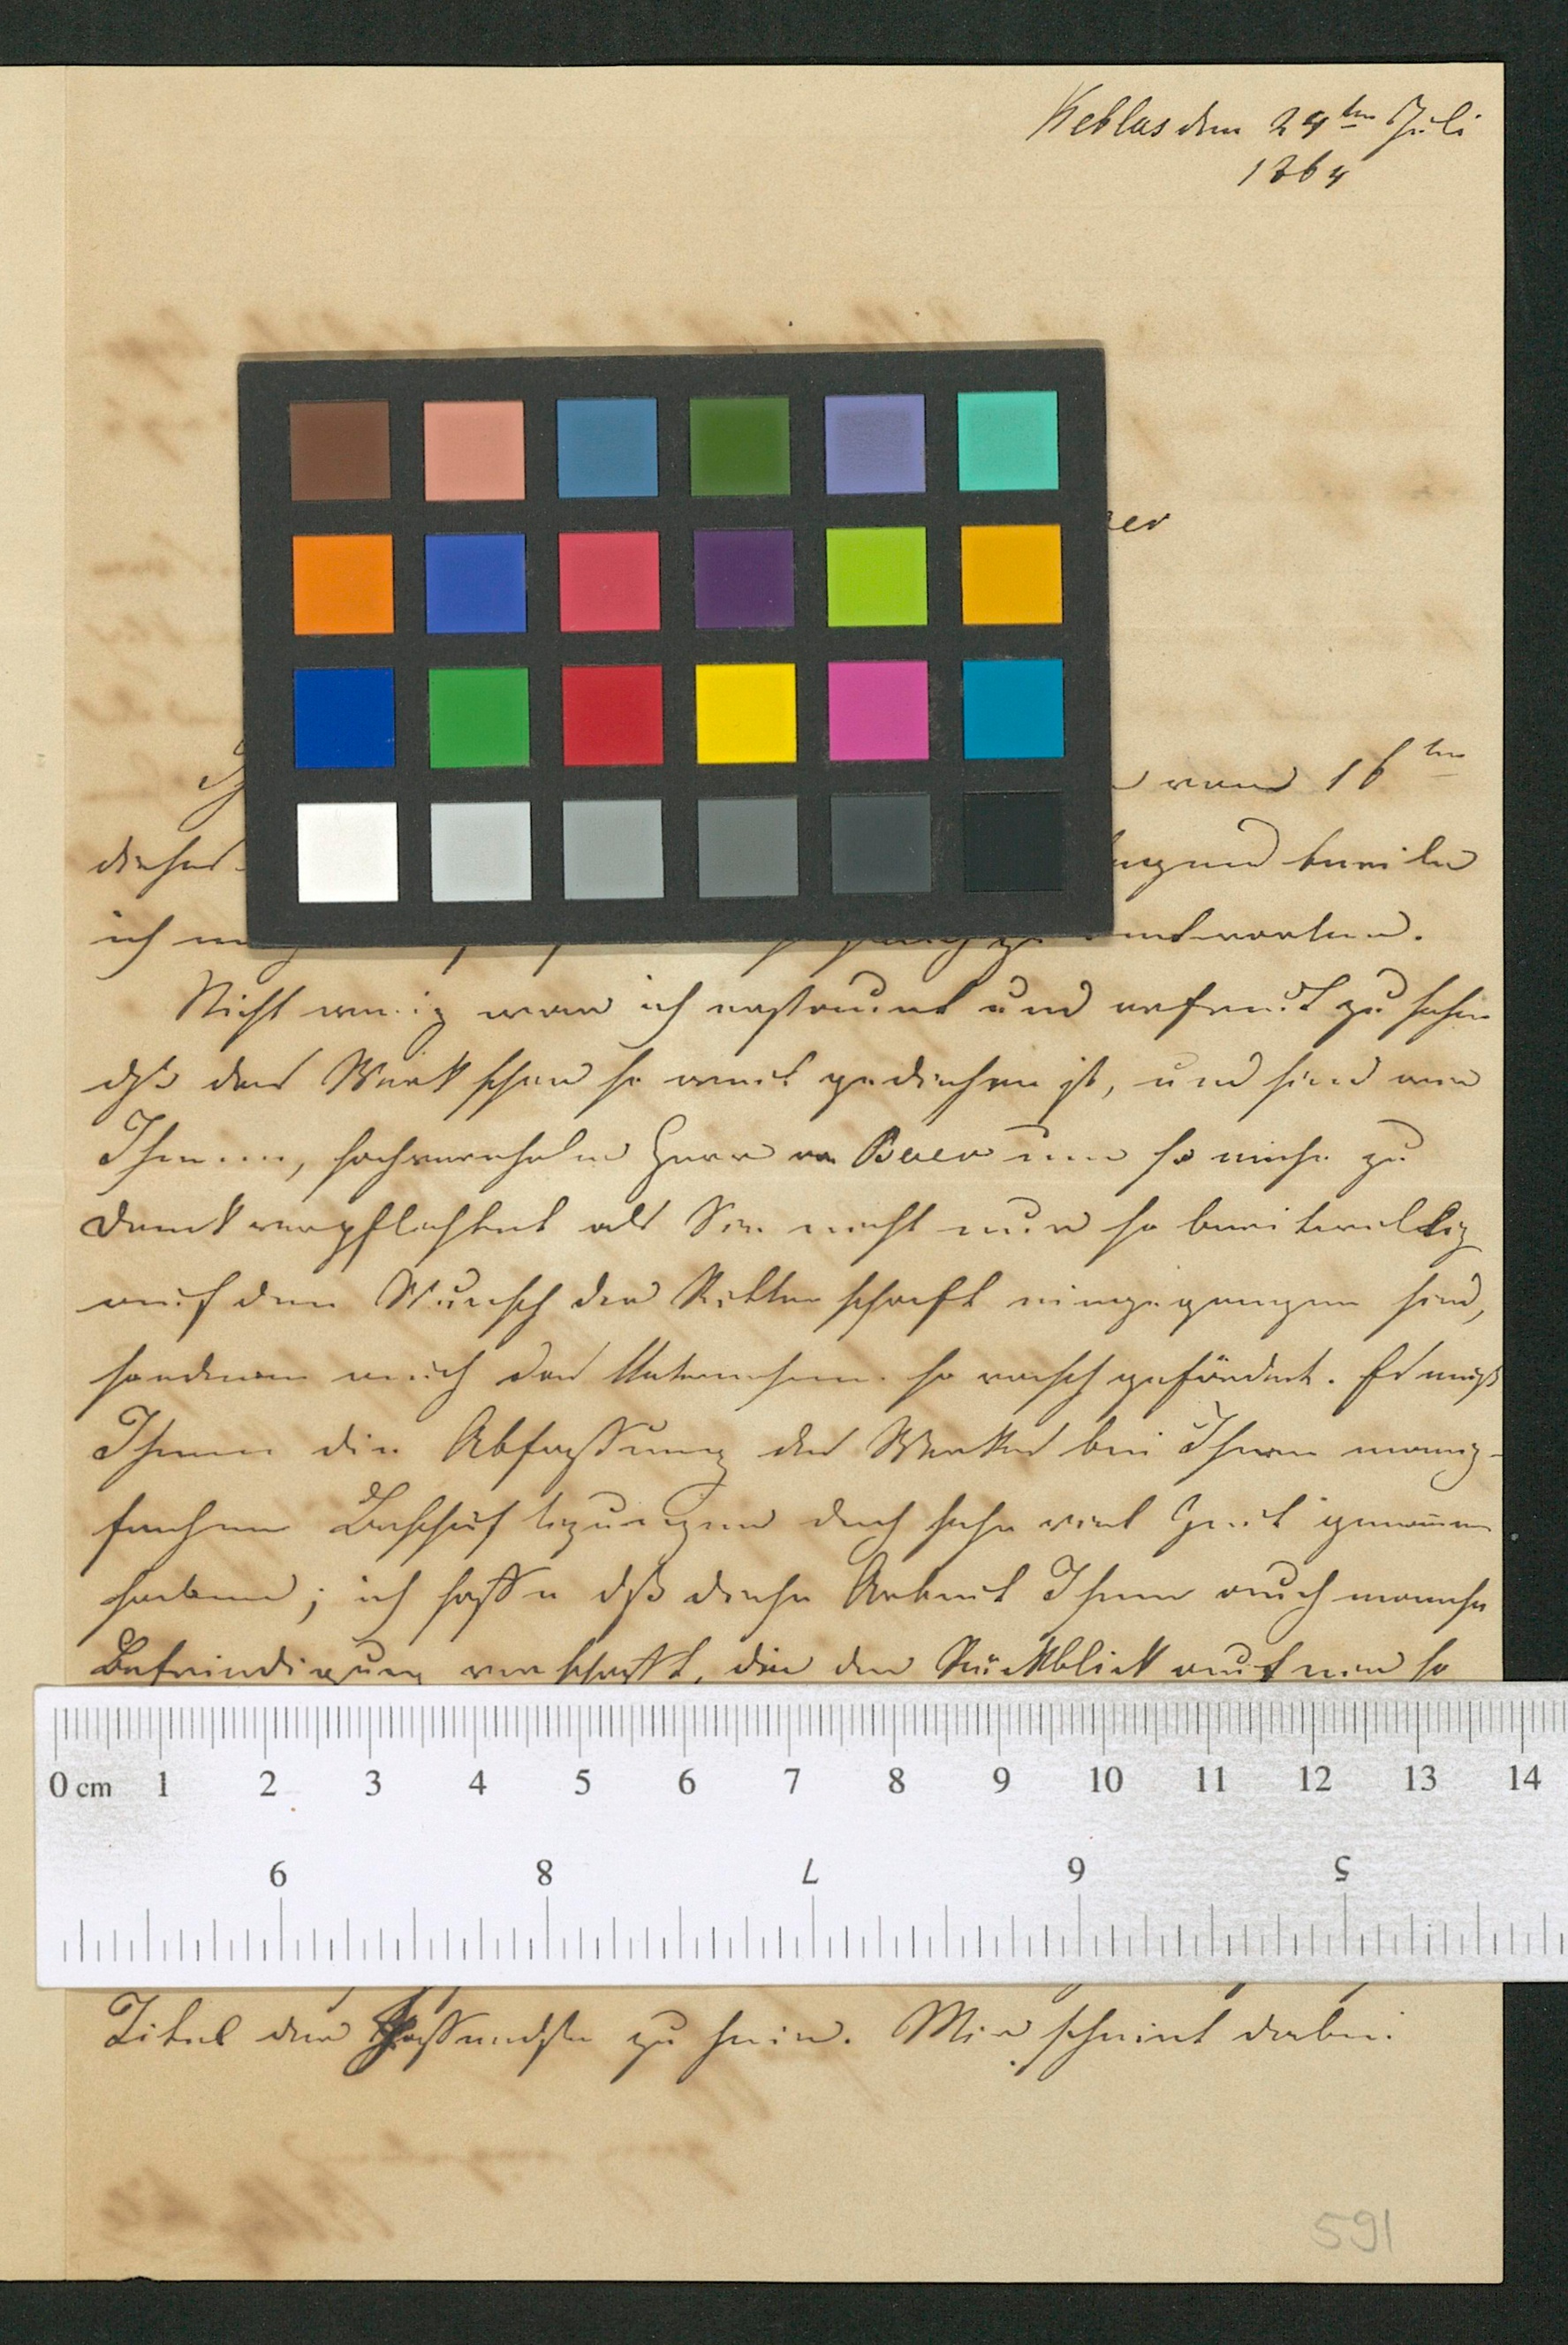 Keblas den 24ten Juli
1864
aer
vom 16ten
dieses
beeile
ich zu antworten.
Nicht wenig war ich erstaunt und erfreut zu sehen
dß das Werk schon so weit gediehen ist, und sind wir
Ihnen, hochverehrter Herr von Baer um so mehr zu
Dank verpflichtet als Sie nicht nur so bereitwillig
auf den Wunsch der Ritterschaft eingegangen sind,
sondern auch das Unternehmen so rasch gefördert. Es muß
Ihnen die Abfassung des Werkes bei Ihren mannig-
fachen Beschäftigungen doch sehr viel Zeit genommen
haben; ich hoffe dß diese Arbeit Ihnen auch manche
Befriedigung verschafft, die der Rückblick auf ein so
0 cm 1 2 3 4 5 6 7 8 9 10 11 12 13 14
9 8 7 6 5
Titel der Passendste zu sein. Mir scheint dabei
591